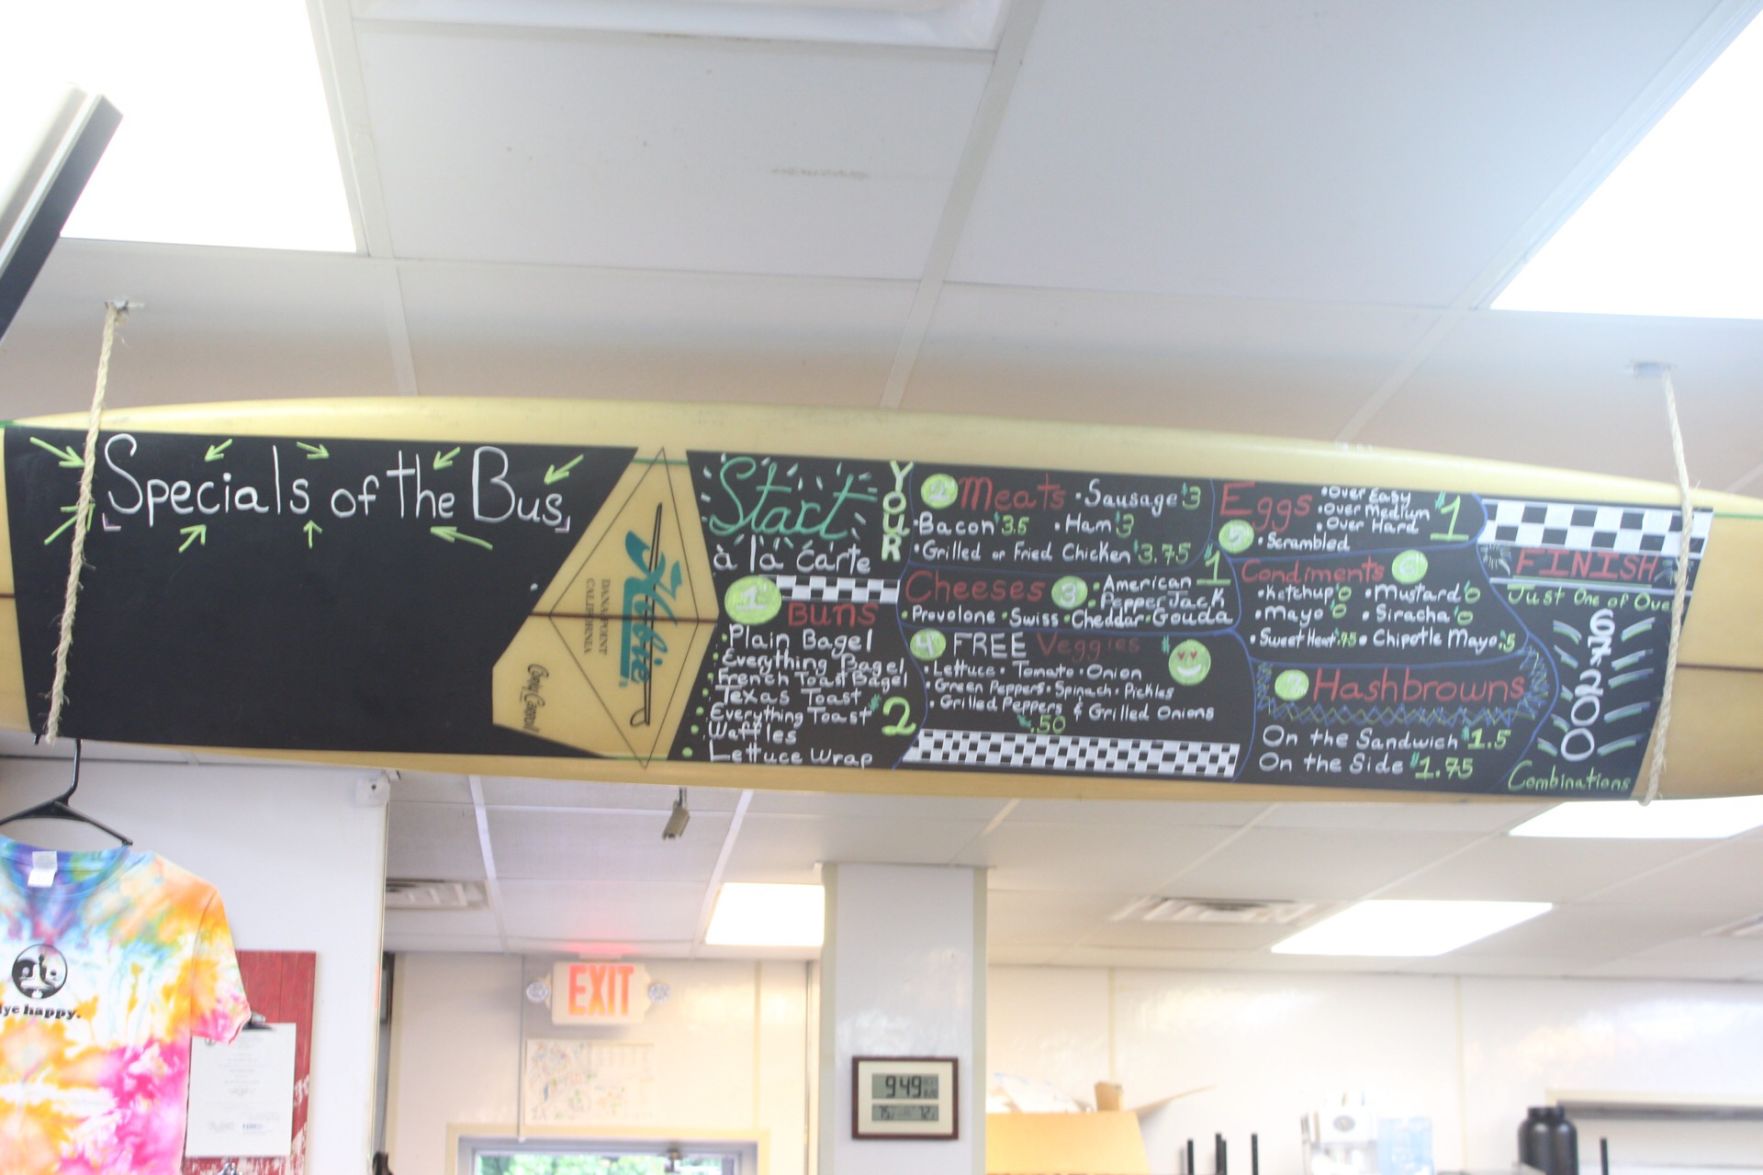 Specials of the Bus
Hobie
DANA POINT
CALIFORNIA
Start
à la carte
YOUR
1 BUNS
Plain Bagel
Everything Bagel
French Toast Bagel
Texas Toast
Everything Toast
Waffles
Lettuce Wrap
$2
2 Meats • Sausage $3
• Bacon $3.5 • Ham $3
• Grilled or Fried Chicken $3.75
Cheeses 3 • American $1
• Pepper Jack
• Provolone • Swiss • Cheddar • Gouda
4 FREE Veggies
• Lettuce • Tomato • Onion
• Green Peppers • Spinach • Pickles
• Grilled Peppers & Grilled Onions
$.50
Eggs • Over Easy $1
• Over Medium
• Over Hard
5 • Scrambled
Condiments 6
• Ketchup $0 • Mustard $0
• Mayo $0 • Siracha $0
• Sweet Heat $.75 • Chipotle Mayo $.5
7 Hashbrowns
On the Sandwich $1.5
On the Side $1.75
FINISH
Just One of Over
Combinations
EXIT
dye happy.
9:49